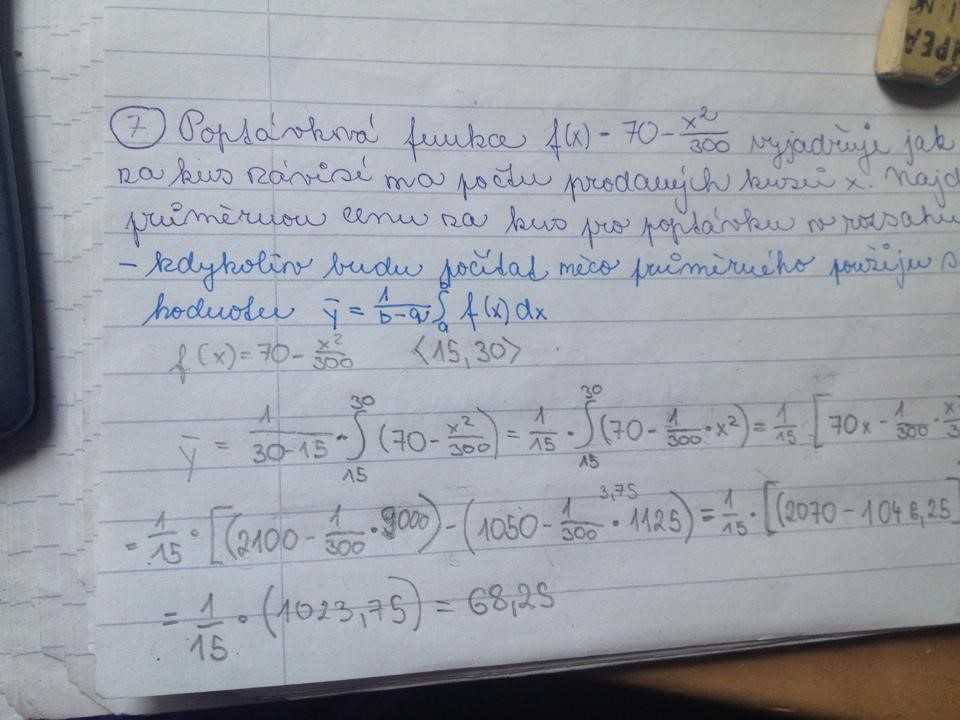 7 Poptávková funkce f(x) = 70 - x²/300 vyjadřuje jak
za kus závisí na počtu prodaných kusů x. Najd
průměrnou cenu za kus pro poptávku v rozsahu
- kdykoliv budu počítat něco průměrného použiju s
hodnotu ȳ = 1/(b-a) ∫_a^b f(x) dx
f(x) = 70 - x²/300 <15,30>
ȳ = 1/(30-15) · ∫_15^30 (70 - x²/300) = 1/15 · ∫_15^30 (70 - 1/300 · x²) = 1/15 [70x - 1/300 · x
= 1/15 · [(2100 - 1/300 · 9000) - (1050 - 1/300 · 1125) = 1/15 · [(2070 - 1046,25]
3,75
= 1/15 · (1023,75) = 68,25